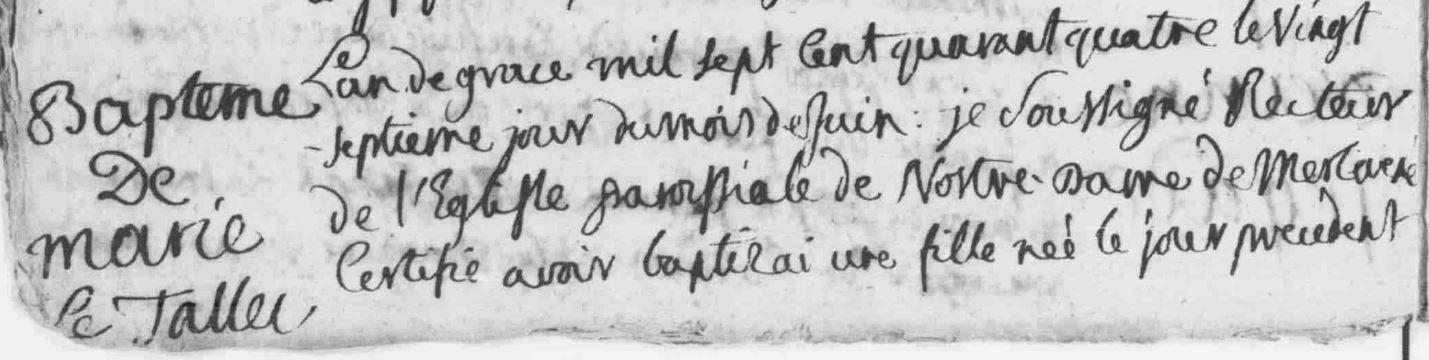 Bapteme
De
marie
Le Tallec
Le an de grace mil sept Cent quarant quatre le vingt
septieme jour du mois de Juin : je Soussigné Recteur
de l'Eglisse paroissiale de Nostre Dame de
Certifie avoir baptizai une fille neé le jour precedent